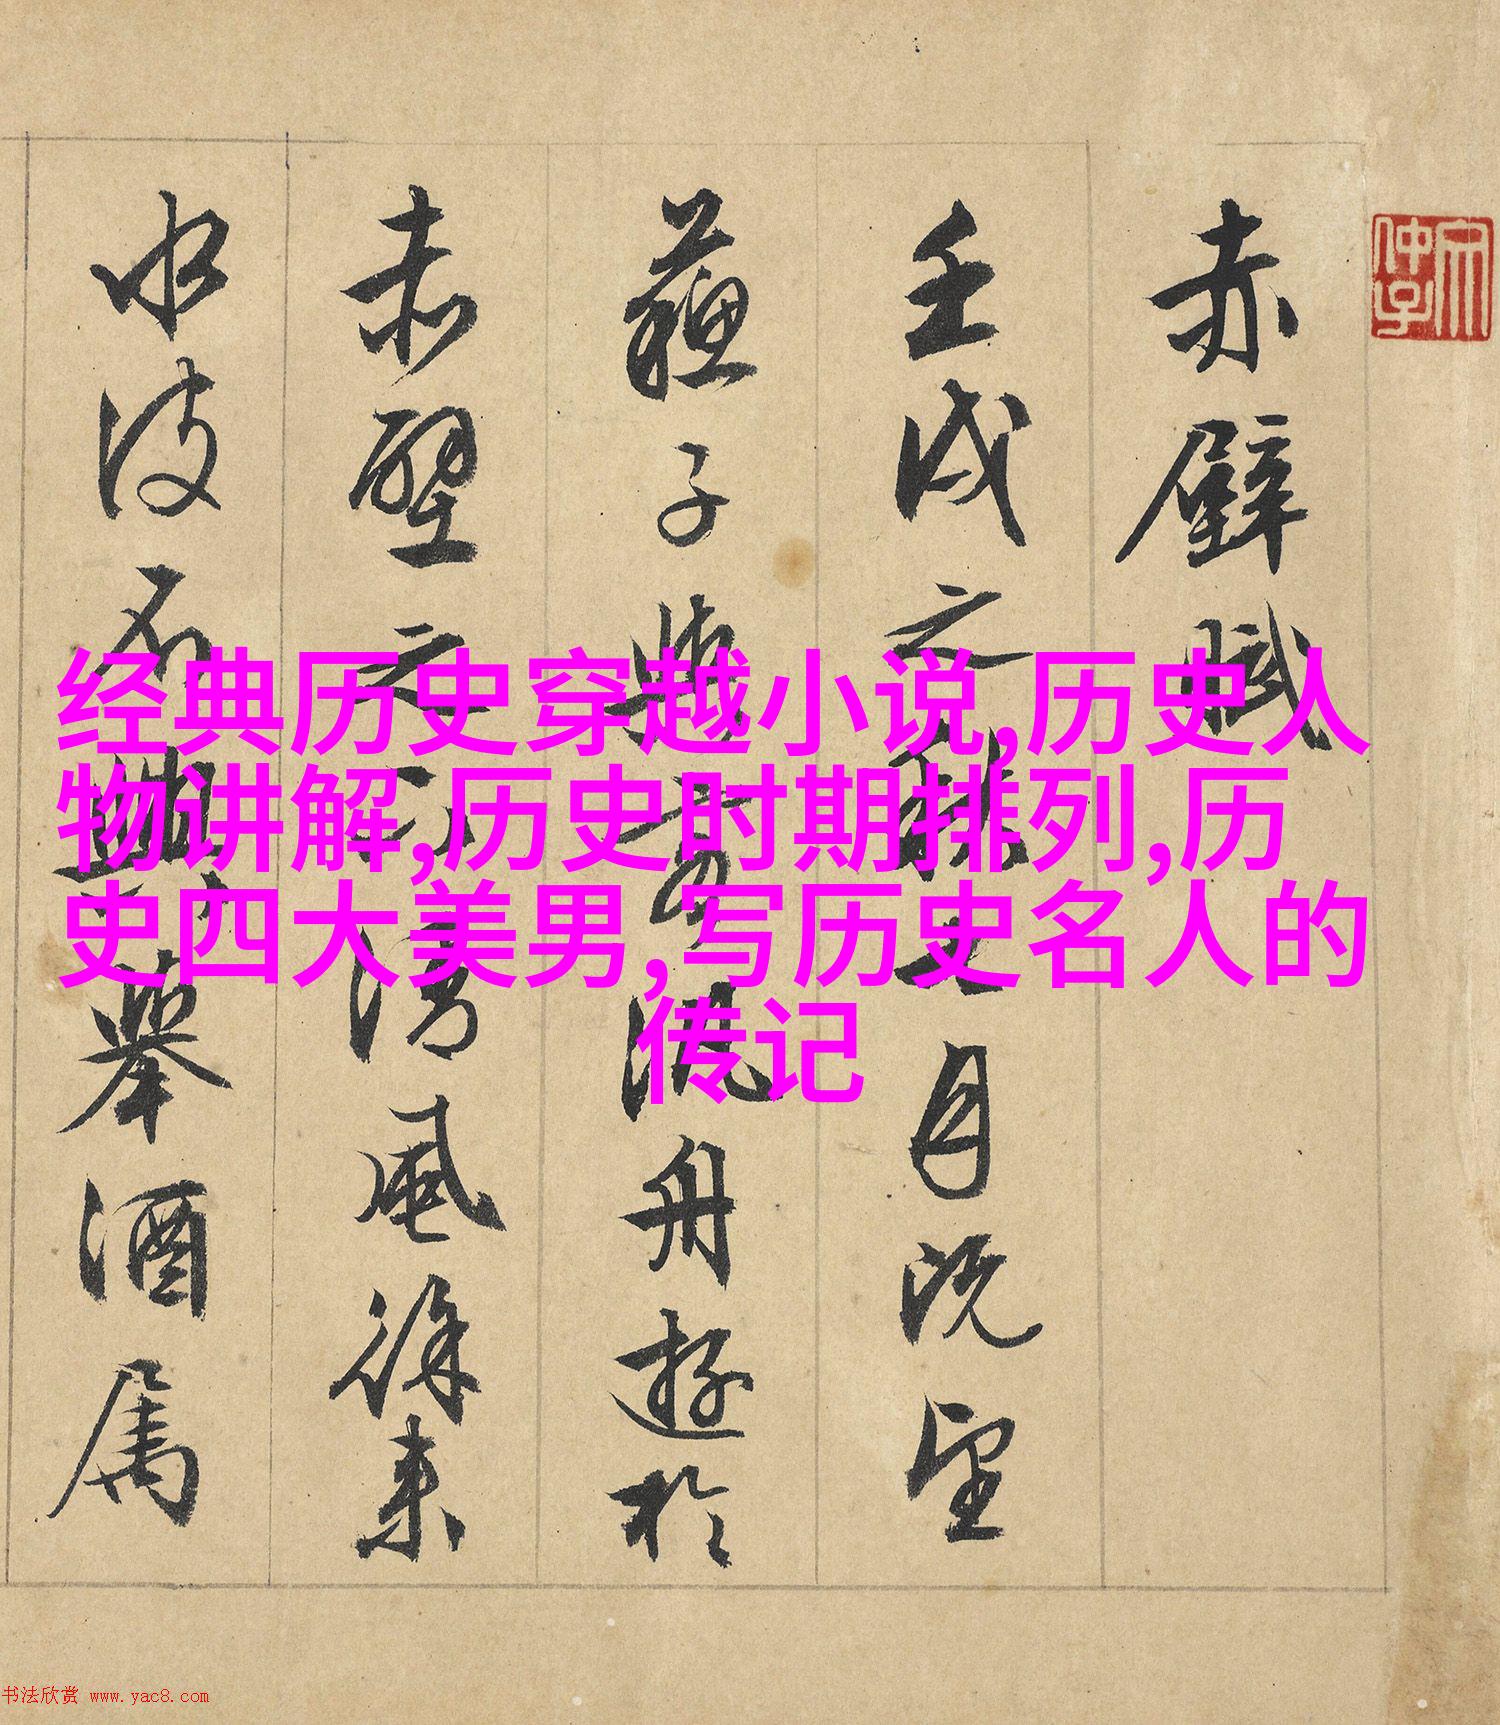 赤壁賦
壬戌之秋七月既望
蘇子與客汎舟遊於
赤壁之下清風徐来
水波不興舉酒属
经典历史穿越小说,历史人
物讲解,历史时期排列,历
史四大美男,写历史名人的
传记
书法欣赏 www.yac8.com